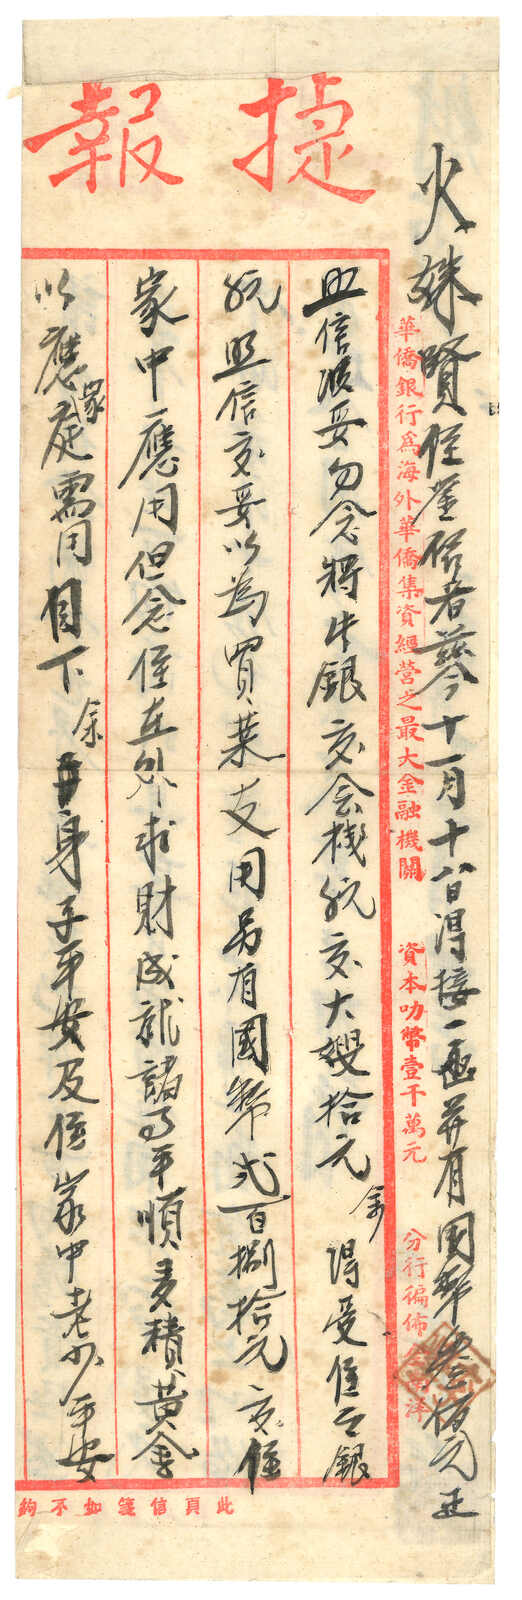 捷報
火殊賢侄崖啓者茲今十一月十八日得接一函并有國幣叁佰元正
華僑銀行爲海外華僑集資經營之最大金融機關　資本叻幣壹千萬元　分行徧佈南洋
照信收妥勿念將此銀交会機航交大嫂拾元余得受侄之銀
航照信交妥以為買業支用另有國幣弍百捌拾元交侄
家中應用但念侄在外求財成就諸事平順多積黃金
以應家庭需用目下余身子平安及侄家中老少平安
此頁信箋如不夠